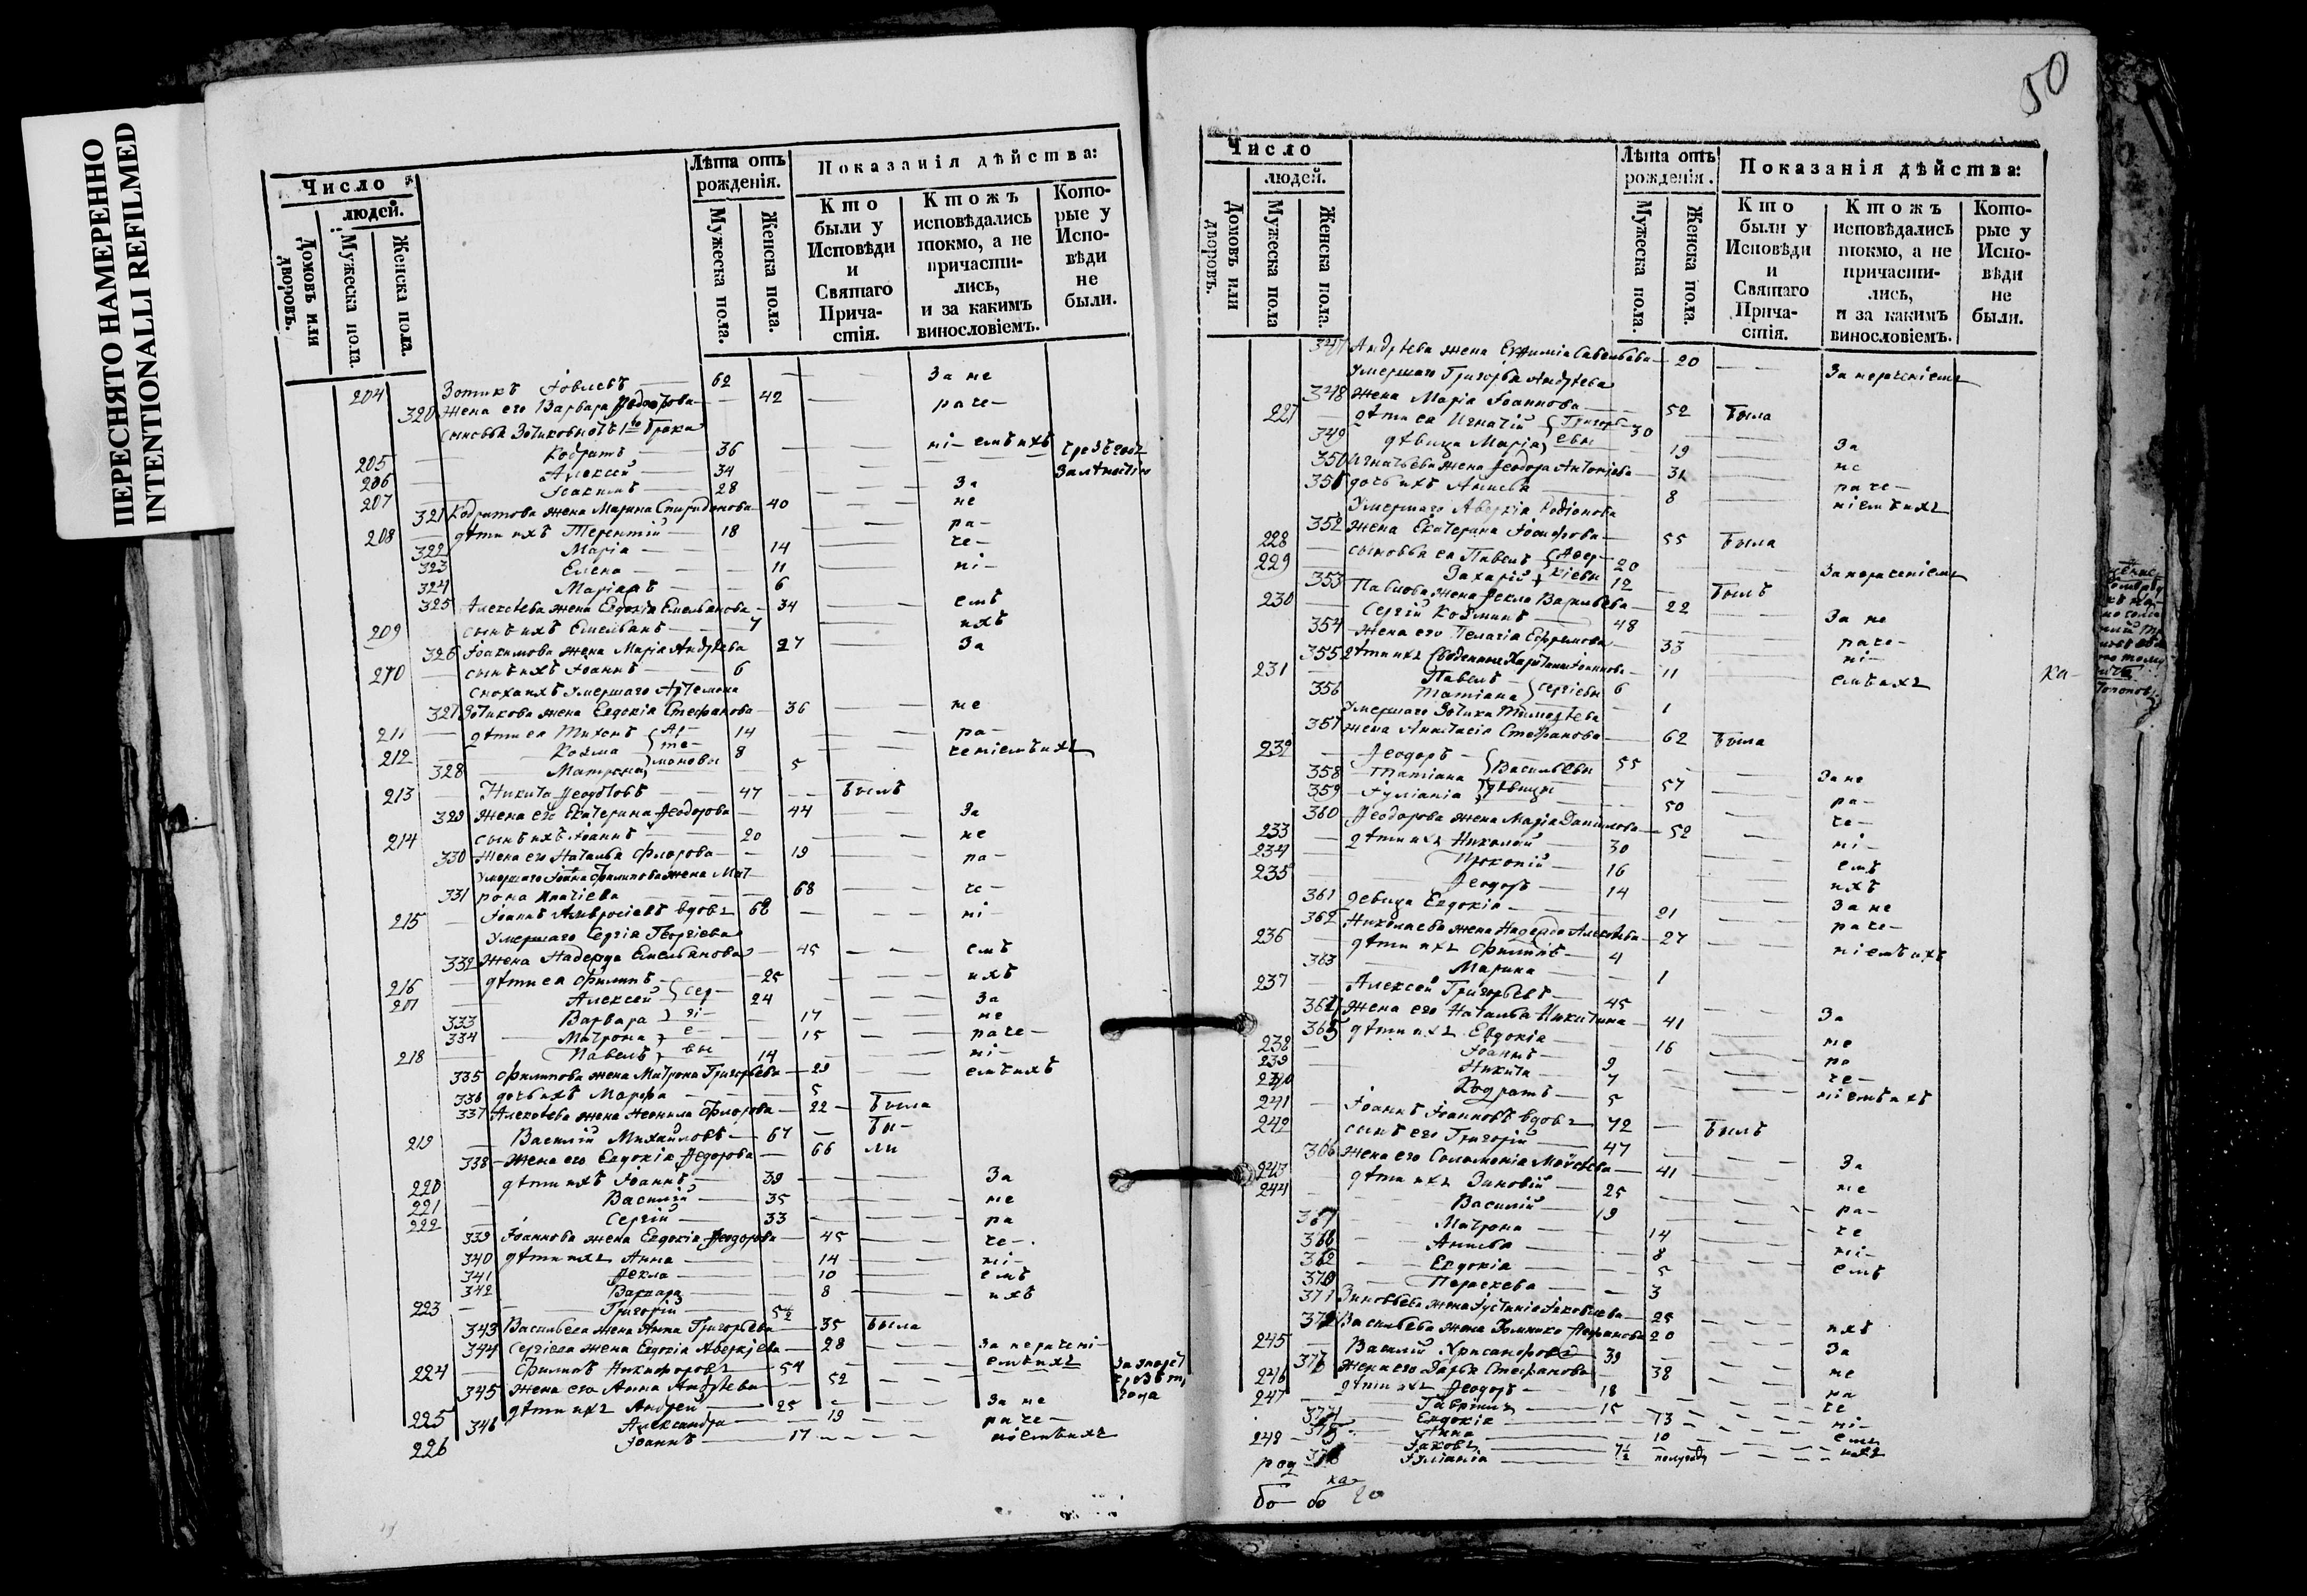 ПЕРЕСНЯТО НАМЕРЕННО
INTENTIONALLI REFILMED
Число
людей.
Домовъ или дворовъ.
Мужеска пола.
Женска пола.
Лѣта отъ рожденія.
Мужеска пола.
Женска пола.
Показанія дѣйства:
Кто были у Исповѣди и Святаго Прича-стія.
Ктожъ исповѣдались токмо, а не причасти-лись, и за какимъ винословіемъ.
Кото-рые у Испо-вѣди не были.
204 Зотикъ Іовлевъ 62 За не
320 Жена его Варвара Ѳеодотова 42 раче-
205 Кодратъ 36 ні-емъ ихъ
206 Алексей 34
207 Іоакимъ 28 За
321 Кодратова жена Марина Спиридонова 40 не
208 дѣти ихъ Терентій 18 ра-
322 Марія 14 че-
323 Елена 11 ні-
324 Маріамъ 6
325 Алексѣева жена Евдокія Емельянова 34 емъ
209 сынъ ихъ Емельянъ 7 ихъ
326 Іоакимова жена Марія Андрѣева 27 За
210 сынъ ихъ Іоаннъ 6
Сноха ихъ умершаго Артемона
327 Зотикова жена Евдокія Стефанова 36 не
211 дѣти ея Тихонъ 14 ра-
212 Козма 8 ченіемъ ихъ
328 Матрона 5
213 Никита Ѳеодотовъ 47 былъ
329 Жена его Екатерина Ѳеодорова 44 За
214 сынъ ихъ Іоаннъ 20 не
330 Жена его Наталья Флорова 19 ра-
Умершаго Іоанна Филипова жена Мат-
331 рона Ипатіева 68 че-
215 Іоаннъ Амвросіевъ вдовъ 62 ні
Умершаго Сергія Георгіева
332 Жена Надежда Емельянова 45 емъ
216 дѣти ея Филипъ 25 ихъ
217 Алексей 24 За
333 Варвара 17 не
334 Матрона 15 раче-
218 Павелъ 14 ні-
335 Филипова жена Матрона Григорьева 29 емъ ихъ
336 дочь ихъ Марфа 5
337 Алексѣева жена Неонила Флорова 22 была
219 Василій Михайловъ 67 бы-
338 Жена его Евдокія Ѳедорова 66 ли
220 дѣти ихъ Іоаннъ 39 За
221 Василій 35 не
222 Сергій 33 ра
339 Іоаннова жена Евдокія Ѳеодорова 45 че-
340 дѣти ихъ Анна 14 ні-
341 Ѳекла 10 емъ
342 Варвара 8 ихъ
223 Григорій
343 Васильева жена Анна Григорьева 35 была
344 Сергіева жена Евдокія Аверкіева 28 За нерачені-
224 Филипъ Никифоровъ 54 емъ ихъ
345 Жена его Анна Андрѣева 52
225 дѣти ихъ Андрей 25 За не
346 Александра 19 раче-
226 Іоаннъ 17 ніемъ ихъ
50
Число
людей.
Домовъ или дворовъ.
Мужеска пола
Женска пола.
Лѣта отъ рожденія.
Мужеска пола.
Женска пола.
Показанія дѣйства:
Кто были у Исповѣди и Святаго Прича-стія.
Ктожъ исповѣдались токмо, а не причасти-лись, и за какимъ винословіемъ.
Кото-рые у Испо-вѣди не были.
347 Андрѣева жена Евѳимія Савельева 20 За нераченіемъ
Умершаго Григорья Андрѣева
348 Жена Марія Іоаннова 52 была
227 дѣти ея Игнатій 30
349 дѣвица Марія 19 За
350 Игнатьева жена Ѳеодора Антоніева 31 не
351 дочь ихъ Анисья 8 раче-
Умершаго Аверкія Родіонова ніемъ ихъ
352 жена Екатерина 55 была
228 сыновья ея Павелъ 20
229 Захарій 12 За нераченіемъ
353 Павлова жена Ѳекла Васильева 22 былъ
230 Сергій Козминъ 48 За не
354 Жена его Пелагія Ефремова 33 раче-
355 11 ні-
231 Павелъ 6 емъ ихъ
356 Татіана Сергіевы 1
Умершаго Зотика Тимоѳѣева
357 жена Анастасія Стефанова 62 была
232 Ѳеодоръ Васильевы 55
358 Татіана 57 За не
359 Іуліанія дѣвицы 50 ра-
360 Ѳеодорова жена Марія Данилова 52 че-
233 дѣти ихъ Николай 30 ні-
234 Прокопій 16 емъ
235 Ѳеодоръ 14 ихъ
361 девица Евдокія 21 За не
362 Николаева жена Надежда Алексѣева 27 раче-
236 дѣти ихъ Филипъ 4 ніемъ ихъ
363 Марина 1
237 Алексей Григорьевъ 45
364 Жена его Наталья Никитина 41 За
365 дѣти ихъ Евдокія 16 не
238 Іоаннъ 9 ра
239 Никита 7 че-
240 Кодратъ 5 ніемъ ихъ
241 Іоаннъ Іоанновъ вдовъ 72 былъ
242 сынъ его Григорій 47
366 Жена его Соломонія Моисѣева 41 За
243 дѣти ихъ Зиновій 25 не
244 Василій 19 ра-
367 Матрона 14 че
368 Анисья 8 ні-
369 Евдокія 5 емъ
370 Параскева 3
371 Зиновьева жена Іустинія Іаковлева 25
372 Васильева жена 20 ихъ
245 Василій Хрисанфовъ 39 За
373 Жена его Дарья Стефанова 38 не
246 дѣти ихъ Ѳеодоръ 18 ра
247 Гавріилъ 15 че
374 Евдокія 13 ні-
375 Анна 10 емъ
248 Іаковъ ихъ
376 Іуліанія полугода
ка-